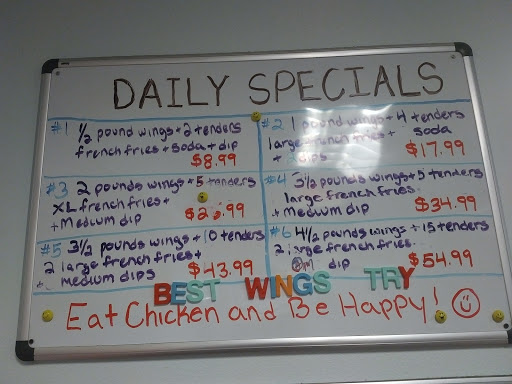 DAILY SPECIALS
#1 1/2 pound wings + 2 tenders
french fries + soda + dip
$8.99
#2 1 pound wings + 4 tenders
large french fries + soda
+ 2 dips $17.99
#3 2 pounds wings + 5 tenders
XL french fries +
+ Medium dip $2 .99
#4 3 1/2 pounds wings + 5 tenders
large french fries
+ Medium dip $34.99
#5 3 1/2 pounds wings + 10 tenders
2 large french fries +
+ medium dips $43.99
#6 4 1/2 pounds wings + 15 tenders
2 large french fries
dip $54.99
BEST WINGS TRY
Eat Chicken and Be Happy!